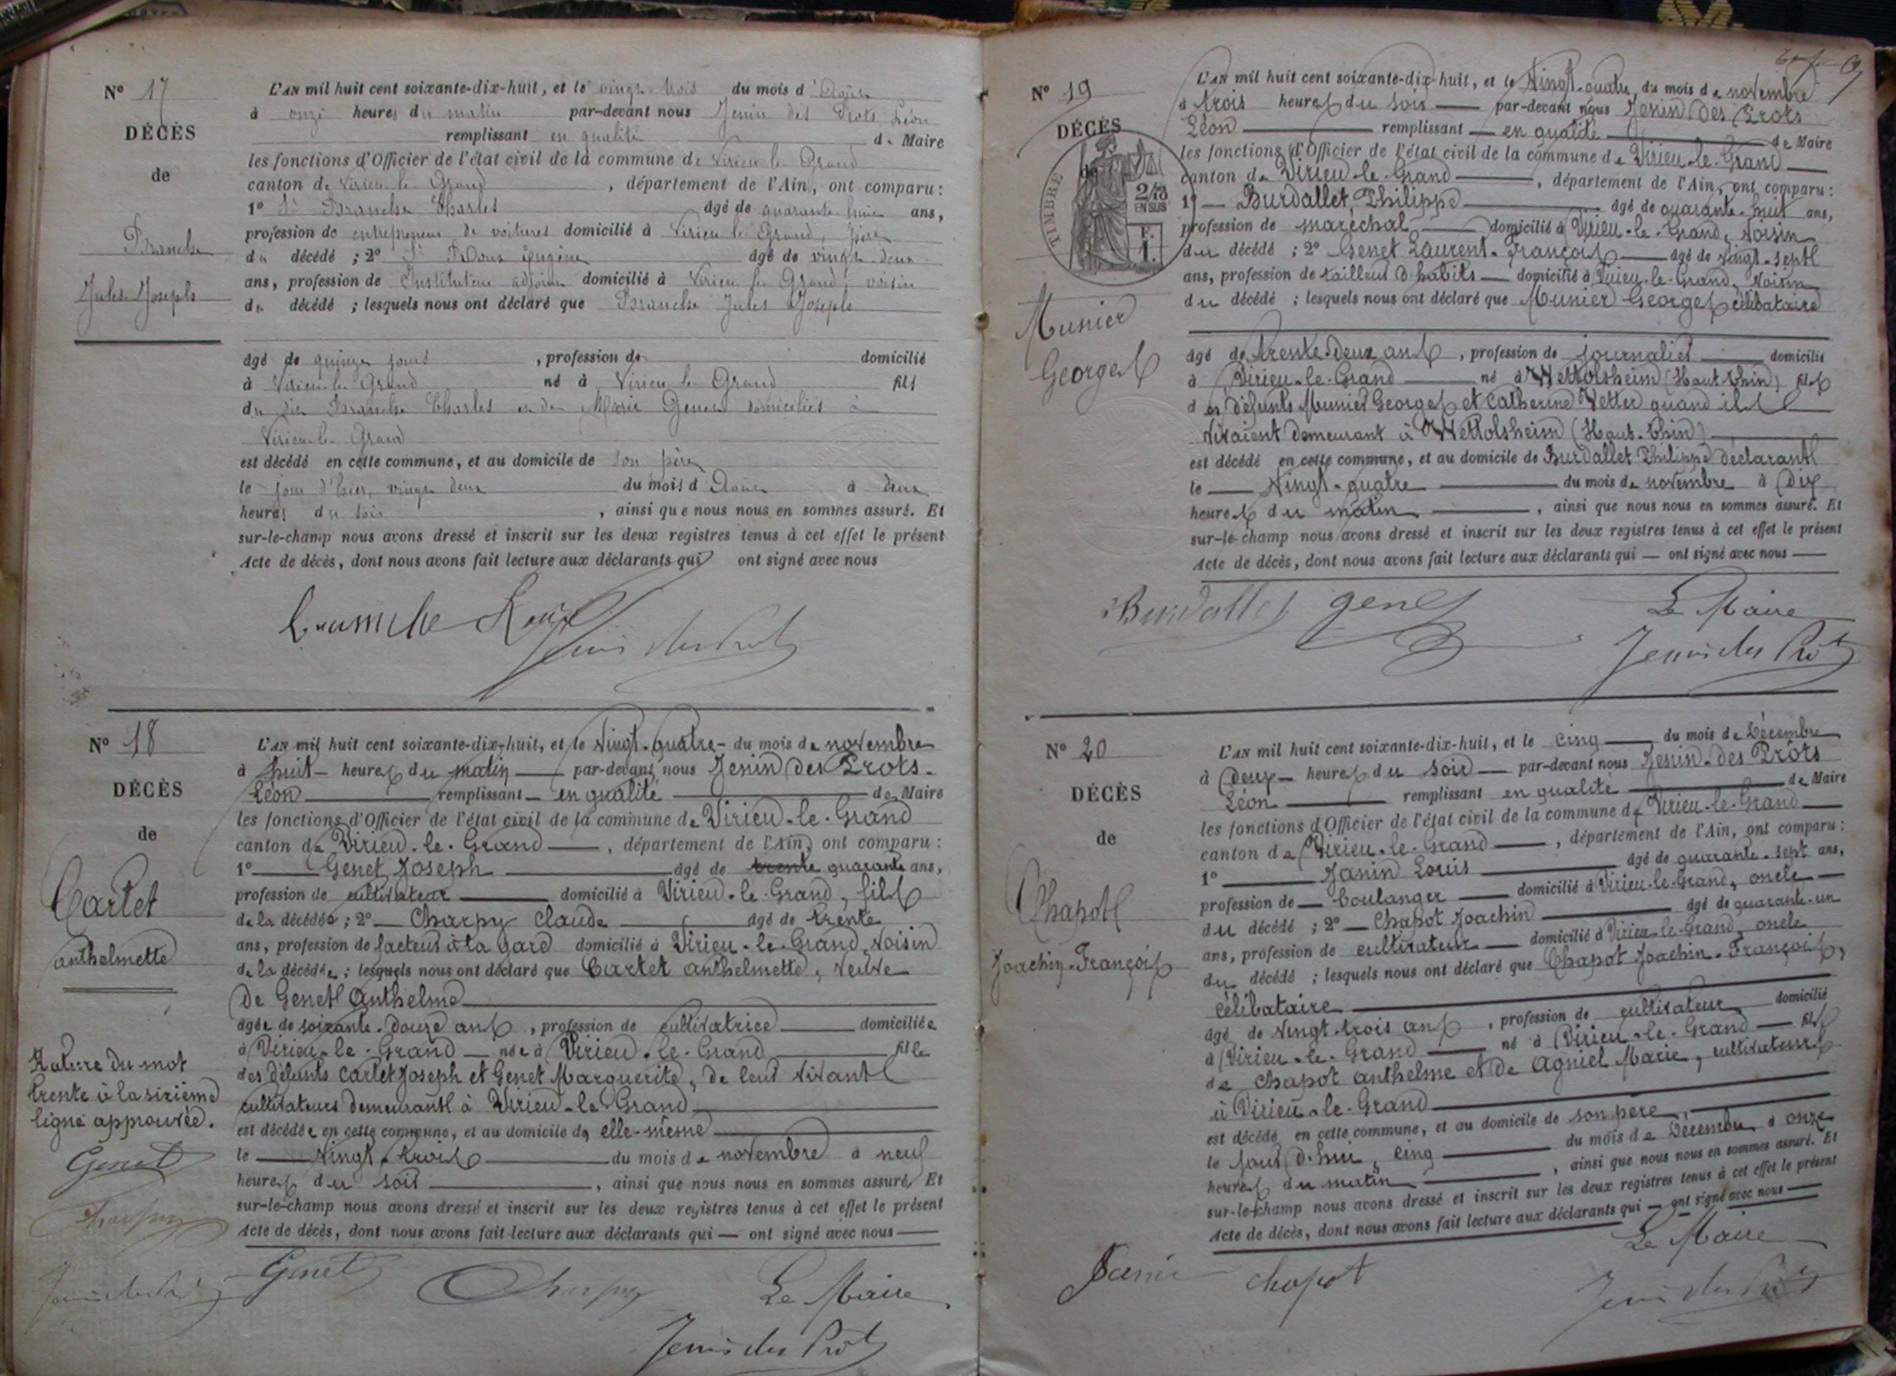 N° 17
DÉCÈS
de
Branche
Jules Joseph
L'AN mil huit cent soixante-dix-huit, et le vingt trois du mois d'Août
à onze heures du matin par-devant nous Jenin des Prots Léon
remplissant en qualité de Maire
les fonctions d'Officier de l'état civil de la commune de Virieu le Grand
canton de Virieu le Grand, département de l'Ain, ont comparu :
1° Sr Branche Charles âgé de quarante huit ans,
profession de entrepreneur de voitures domicilié à Virieu le Grand, père
du décédé ; 2° Sr Roux Eugène âgé de vingt deux
ans, profession de Instituteur adjoint domicilié à Virieu le Grand, voisin
du décédé ; lesquels nous ont déclaré que Branche Jules Joseph
âgé de quinze jours, profession de domicilié
à Virieu le Grand né à Virieu le Grand fils
du dit Branche Charles et de Marie domiciliés à
Virieu le Grand
est décédé en cette commune, et au domicile de son père
le jour d'hier, vingt deux du mois d'Août à deux
heures du soir, ainsi que nous nous en sommes assuré. Et
sur-le-champ nous avons dressé et inscrit sur les deux registres tenus à cet effet le présent
Acte de décès, dont nous avons fait lecture aux déclarants qui ont signé avec nous
Branche Roux
Jenin des Prots
N° 18
DÉCÈS
de
Cartet
anthelmette
Rature du mot
trente à la sixième
ligne approuvée.
Genet
Charpy
Jenin des Prots
L'AN mil huit cent soixante-dix-huit, et le Vingt-quatre du mois de novembre
à huit heures du matin par-devant nous Jenin des Prots
Léon remplissant en qualité de Maire
les fonctions d'Officier de l'état civil de la commune de Virieu-le-Grand
canton de Virieu-le-Grand, département de l'Ain, ont comparu :
1° Genet Joseph âgé de trente quarante ans,
profession de cultivateur domicilié à Virieu-le-Grand, fils
de la décédée ; 2° Charpy Claude âgé de trente
ans, profession de facteur à la gare domicilié à Virieu-le-Grand, Voisin
de la décédée ; lesquels nous ont déclaré que Cartet anthelmette, Veuve
de Genet Anthelme
âgée de soixante-douze ans, profession de cultivatrice domiciliée
à Virieu-le-Grand née à Virieu-le-Grand fille
des défunts Cartet Joseph et Genet Marguerite, de leur vivant
cultivateurs demeurant à Virieu-le-Grand
est décédée en cette commune, et au domicile d'elle-même
le Vingt-trois du mois de novembre à neuf
heures du soir, ainsi que nous nous en sommes assuré, Et
sur-le-champ nous avons dressé et inscrit sur les deux registres tenus à cet effet le présent
Acte de décès, dont nous avons fait lecture aux déclarants qui — ont signé avec nous
Genet Charpy Le Maire
Jenin des Prots
N° 19
DÉCÈS
de
TIMBRE
2/10
EN SUS
F.
1.
Munier
Georges
L'AN mil huit cent soixante-dix-huit, et le Vingt-quatre du mois de novembre
à trois heures du soir par-devant nous Jenin des Prots
Léon remplissant en qualité de Maire
les fonctions d'Officier de l'état civil de la commune de Virieu-le-Grand
canton de Virieu-le-Grand, département de l'Ain, ont comparu :
1° Burdallet Philippe âgé de quarante-huit ans,
profession de maréchal domicilié à Virieu-le-Grand, Voisin
du décédé ; 2° Genet Laurent-François âgé de vingt-sept
ans, profession de tailleur d'habits domicilié à Virieu-le-Grand, Voisin
du décédé ; lesquels nous ont déclaré que Munier Georges célibataire
âgé de trente-deux ans, profession de journalier domicilié
à Virieu-le-Grand né à Wettolsheim (Haut-Rhin) fils
des défunts Munier Georges et Catherine Vetter quand ils
vivaient demeurant à Wettolsheim (Haut-Rhin)
est décédé en cette commune, et au domicile de Burdallet Philippe déclarant
le Vingt-quatre du mois de novembre à dix
heures du matin, ainsi que nous nous en sommes assuré. Et
sur-le-champ nous avons dressé et inscrit sur les deux registres tenus à cet effet le présent
Acte de décès, dont nous avons fait lecture aux déclarants qui — ont signé avec nous
Burdallet Genet Le Maire
Jenin des Prots
N° 20
DÉCÈS
de
Chapot
Joachin-François
L'AN mil huit cent soixante-dix-huit, et le cinq du mois de Décembre
à deux heures du soir par-devant nous Jenin-des Prôts
Léon remplissant en qualité de Maire
les fonctions d'Officier de l'état civil de la commune de Virieu-le-Grand
canton de Virieu-le-Grand, département de l'Ain, ont comparu :
1° Janin Louis âgé de quarante-sept ans,
profession de boulanger domicilié à Virieu-le-Grand, oncle
du décédé ; 2° Chapot Joachin âgé de quarante-un
ans, profession de cultivateur domicilié à Virieu-le-Grand, oncle
du décédé ; lesquels nous ont déclaré que Chapot Joachin-François,
célibataire
âgé de vingt-trois ans, profession de cultivateur domicilié
à Virieu-le-Grand né à Virieu-le-Grand fils
de Chapot anthelme et de Agniel Marie, cultivateurs
à Virieu-le-Grand
est décédé en cette commune, et au domicile de son père,
le jour d'hui, cinq du mois de Décembre à onze
heures du matin, ainsi que nous nous en sommes assuré. Et
sur-le-champ nous avons dressé et inscrit sur les deux registres tenus à cet effet le présent
Acte de décès, dont nous avons fait lecture aux déclarants qui — ont signé avec nous
Janin Chapot Le Maire
Jenin des Prots